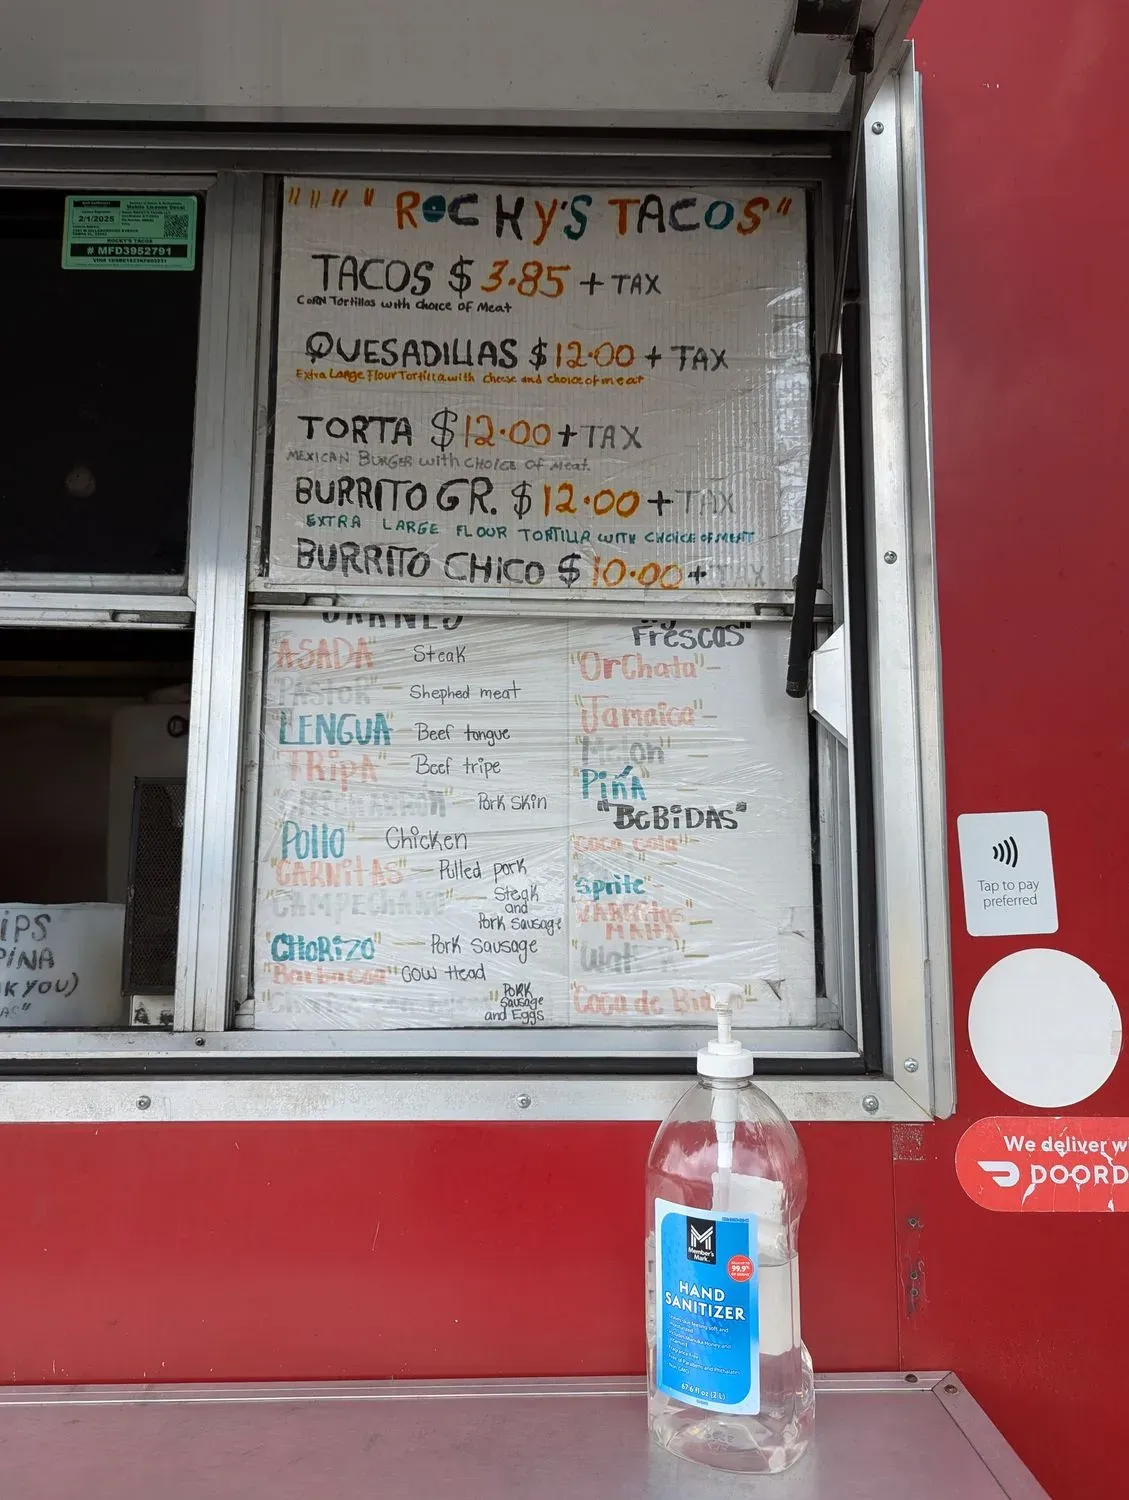 2/1/2025
ROCKY'S TACOS
# MFD3952791
" " " " ROCKY'S TACOS "
TACOS $ 3.85 + TAX
CORN Tortillas with choice of Meat
QUESADILLAS $ 12.00 + TAX
Extra Large Flour Tortilla with cheese and choice of meat
TORTA $ 12.00 + TAX
MEXICAN BURGER with CHOICE OF Meat.
BURRITO GR. $ 12.00 + TAX
EXTRA LARGE FLOUR TORTILLA WITH CHOICE OF MEAT
BURRITO CHICO $ 10.00 + TAX
CARNES
"ASADA" - Steak
"PASTOR" - Shephed meat
"LENGUA" - Beef tongue
"TRIPA" Beef tripe
"CHICHARRON" - Pork Skin
"Pollo" - Chicken
"CARNITAS" - Pulled pork
"CAMPECHANO" - Steak and Pork Sausage
"CHORIZO" - Pork Sausage
"Barbacoa" Cow Head
PORK Sausage and Eggs
Frescas"
"OrChata" -
"Jamaica" -
"Melon" -
"Piña"
"BEBIDAS"
"coca cola" -
"Sprite" -
"JARRITOS" -
MALTA
"Coca de Bi
iPS
PINA
K YOU)
Tap to pay
preferred
We deliver wi
DOORD
M
Member's
Mark.
99.9%
HAND
SANITIZER
Fragrance Free
Free of Parabens and Phthalates
Non GMO
67.6 fl oz (2 L)